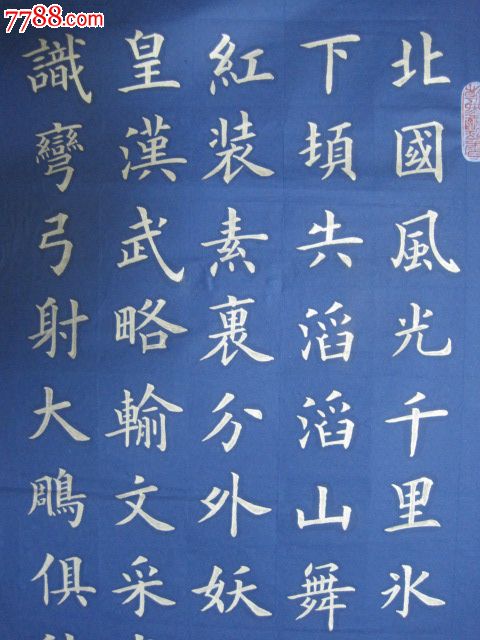 7788.com
北國風光千里氷
下頓失滔滔山舞
紅装素裏分外妖
皇漢武略輸文采
識彎弓射大鵰俱